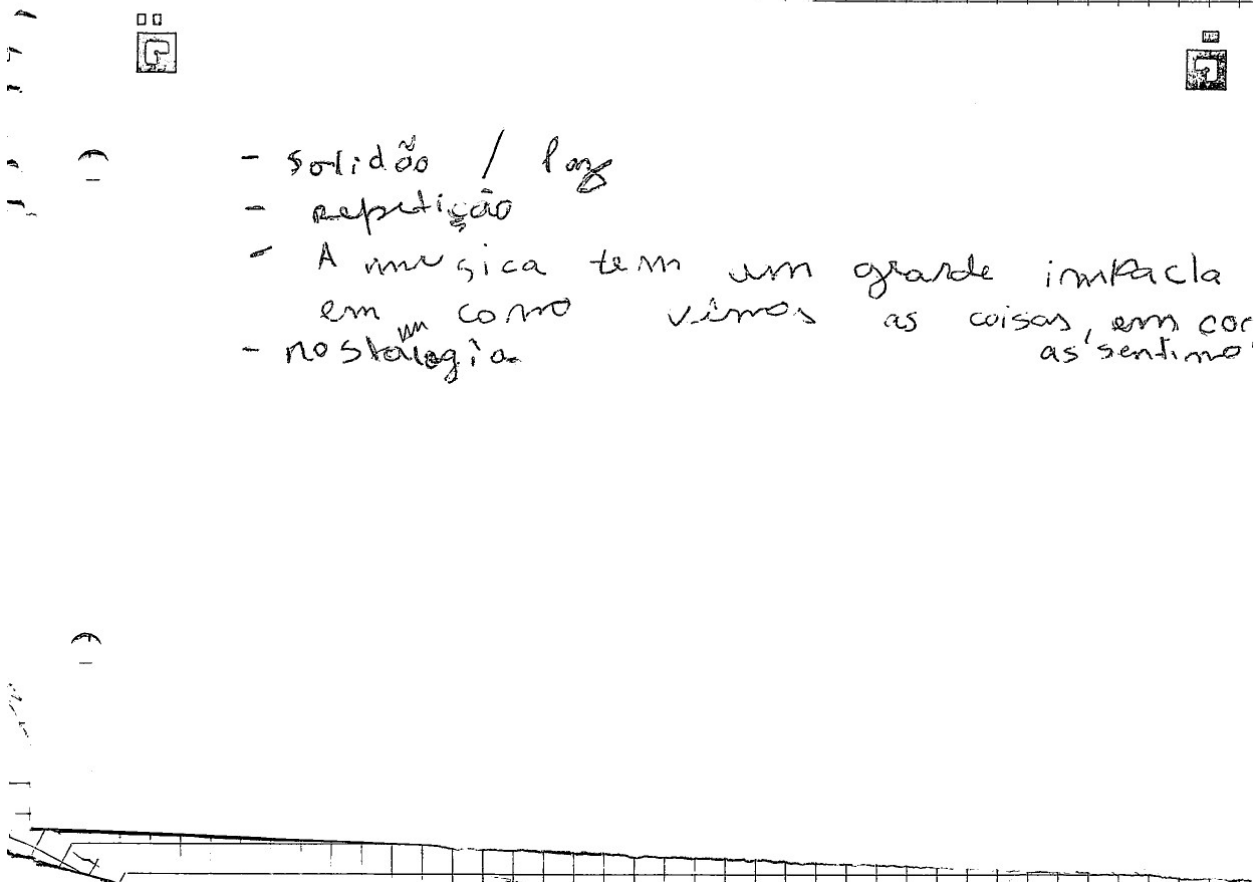 - solidão / Paz
- Repetição
- A musica tem um grande impacto
em como vimos as coisas, em co
as sentimo
- nostalgia